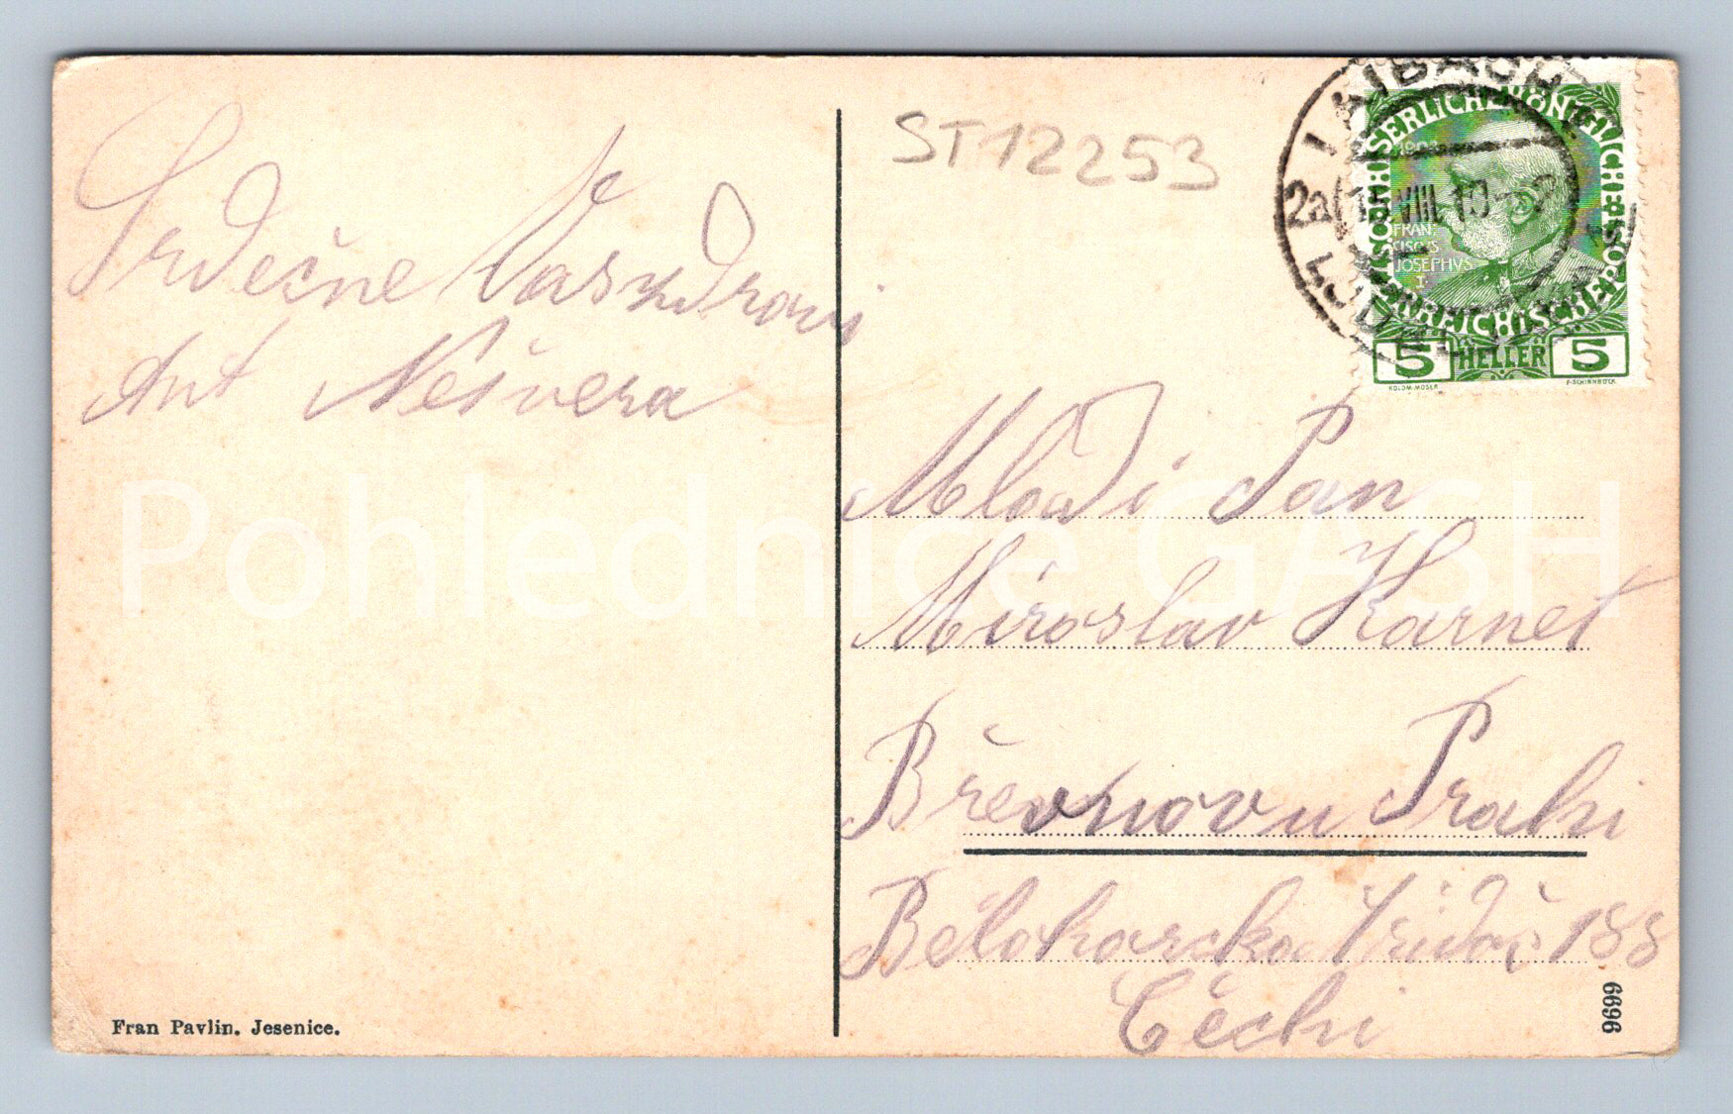 Srdečně Vás zdraví
Ant Nešvera
ST12253
LAIBACH
2a
VIII 10
KAISERLICHE KÖNIGLICHE
ÖSTERREICHISCHE POST
1908
FRAN
CISCVS
JOSEPHVS
I
5 HELLER 5
KOLOM. MOSER
F. SCHIRNBÖCK
Mladi Pan
Miroslav Karnet
Břevnov u Prahi
Bělohorska třida č 188
Čechi
Pohlednice GASH
Fran Pavlin. Jesenice.
6696